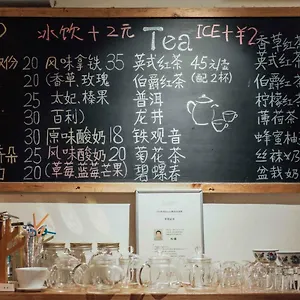 冰饮+2元 Tea ICE+¥2
份 20 风味拿铁 35 英式红茶 45元/壶 香草红
20 (香草.玫瑰 伯爵红茶 (配2杯) 英式红茶
25 太妃.榛果 普洱 伯爵红
30 百利) 龙井 柠檬红
30 原味酸奶 18 铁观音 薄荷茶
25 风味酸奶 20 菊花茶 蜂蜜柚
20 (草莓蓝莓芒果) 碧螺春 丝袜
盆栽奶